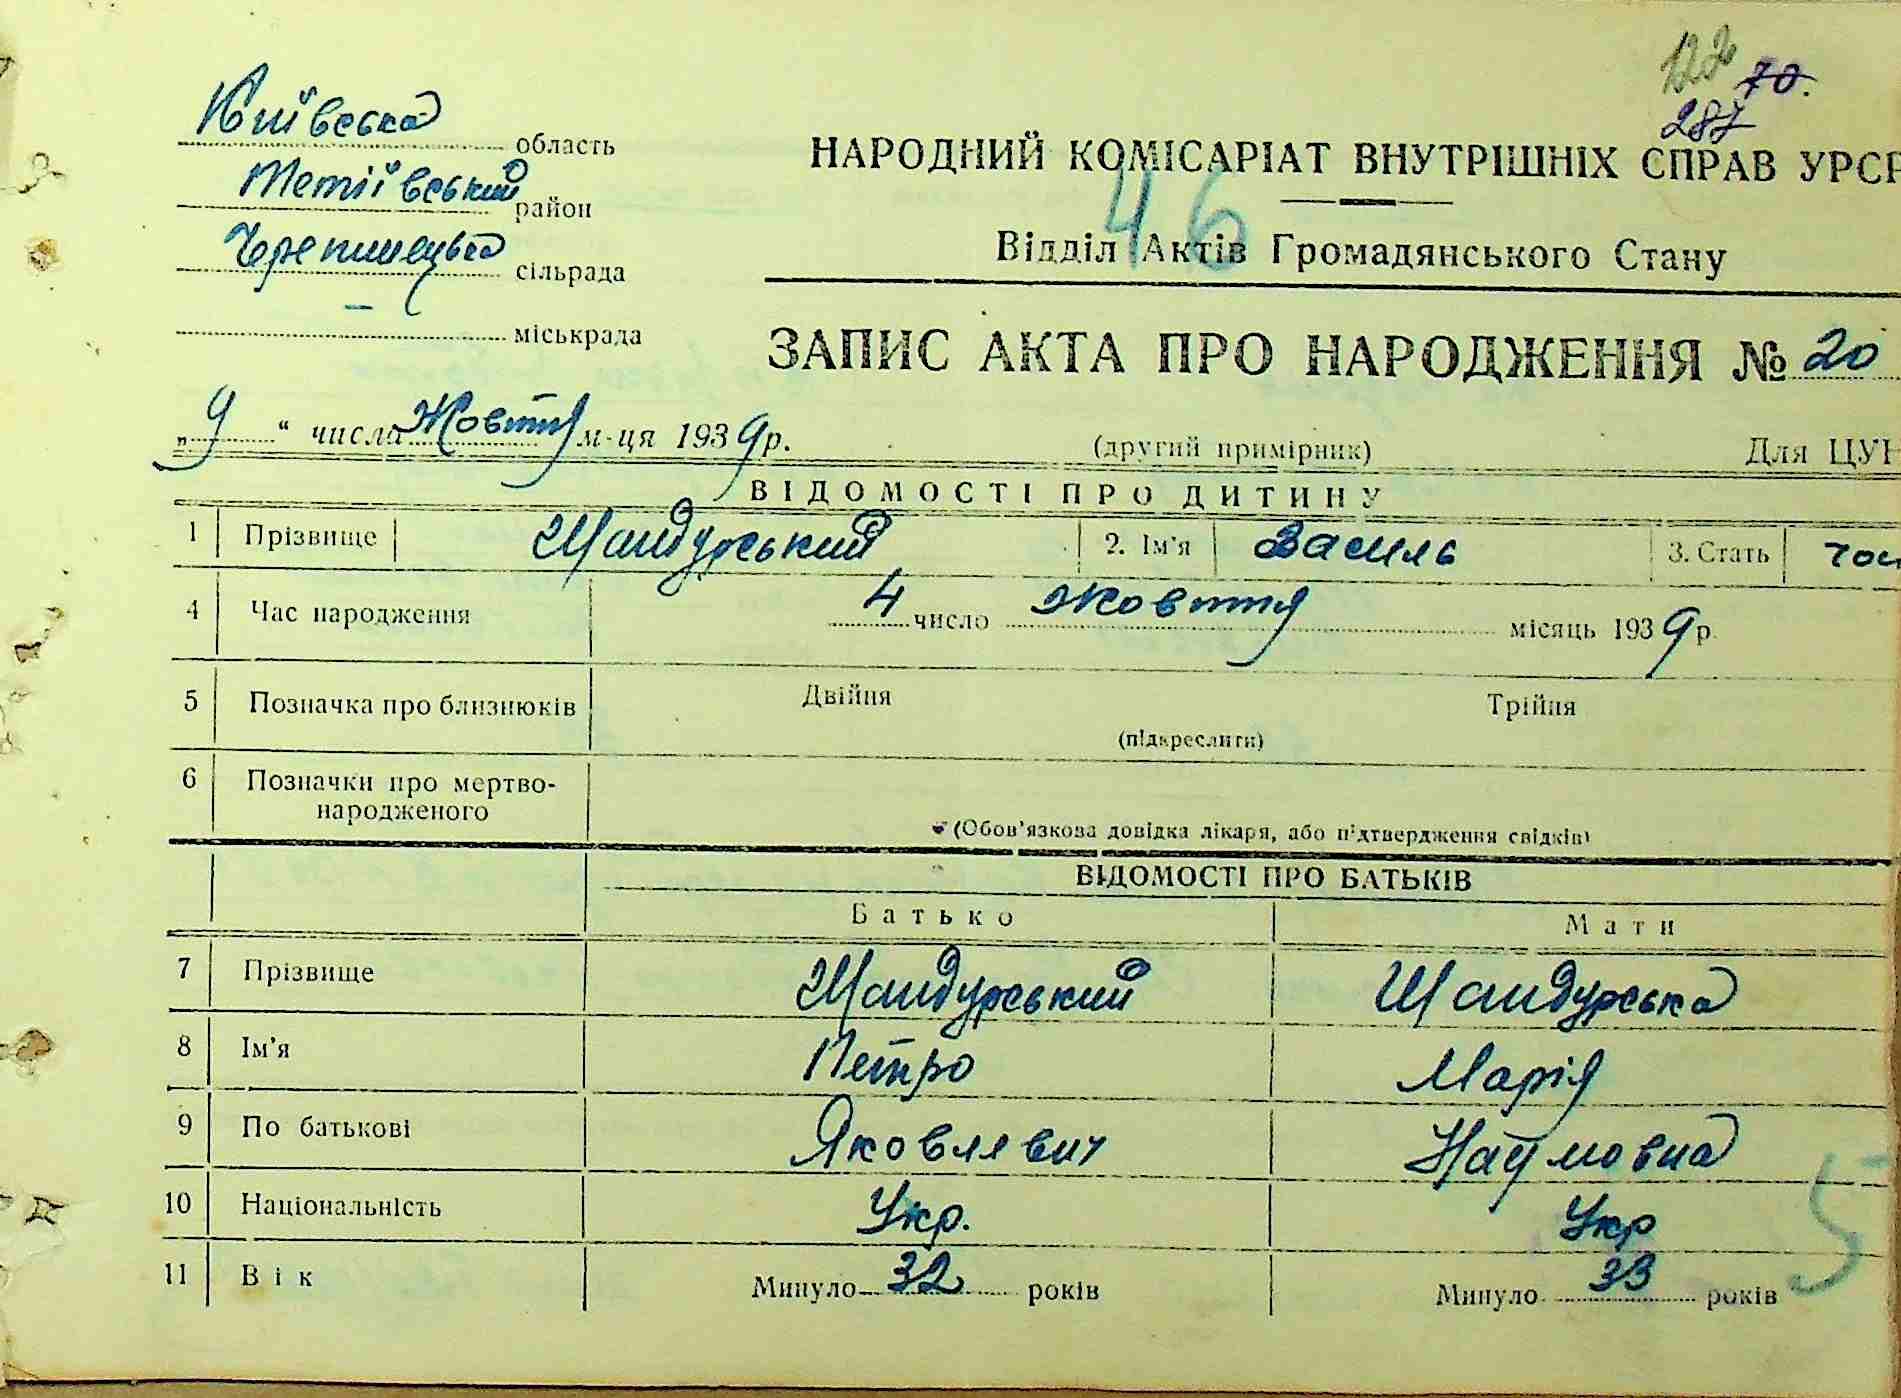 122
70.
287
Київська область
Тетіївський район
Черепинецька сільрада
— міськрада
НАРОДНИЙ КОМІСАРІАТ ВНУТРІШНІХ СПРАВ УРСР
46
Відділ Актів Громадянського Стану
ЗАПИС АКТА ПРО НАРОДЖЕННЯ № 20
„9“ числа Жовтня м-ця 1939 р.
(другий примірник)
Для ЦУН
ВІДОМОСТІ ПРО ДИТИНУ
1 Прізвище Шандурський 2. Ім'я Василь 3. Стать чол
4 Час народження 4 число жовтня місяць 1939 р.
5 Позначка про близнюків Двійня Трійня
(підкреслити)
6 Позначки про мертво-
народженого
(Обов'язкова довідка лікаря, або підтвердження свідків)
ВІДОМОСТІ ПРО БАТЬКІВ
Батько Мати
7 Прізвище Шандурський Шандурська
8 Ім'я Петро Марія
9 По батькові Яковлевич Наумовна
10 Національність Укр. Укр
5
11 Вік Минуло 32 років Минуло 33 років